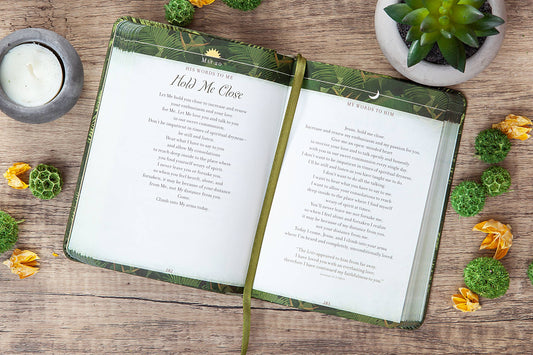 MAY 20
HIS WORDS TO ME
Hold Me Close
Let Me hold you close to increase and renew
your enthusiasm and your love
for Me. Let Me hear you and talk to you
in our secret communion.
Don't be impatient in times of spiritual dryness –
be still and listen.
Hear what I have to say to you
and allow My consolations
to reach deep inside to the place where
you find yourself weary of spirit.
I never leave you or forget you,
so when you feel bereft, alone, and
forsaken, it may be because of your distance
from Me, not My distance from you.
Come.
Climb into My arms today.
182
MY WORDS TO HIM
Jesus, hold me close.
Increase and renew my enthusiasm and my love for You.
Give me an open invitation
to receive your love and to talk openly and honestly
with you in our sweet communion.
I don't want to be impatient in times of spiritual dryness,
I'll be still and listen as you have taught me to do.
I don't want to do all the talking.
I want to hear what you have to say to me.
I want to allow your consolations to reach
deep inside to the place where I find myself
weary of spirit at times.
You'll never leave me nor forsake me,
so when I feel alone and forsaken I realize
it may be because of my distance from you,
not your distance from me.
Today I come, Jesus, and I climb into your arms
where I'm heard and completely, unconditionally loved.
"The LORD appeared to him from far away.
I have loved you with an everlasting love;
therefore I have continued my faithfulness to you."
183